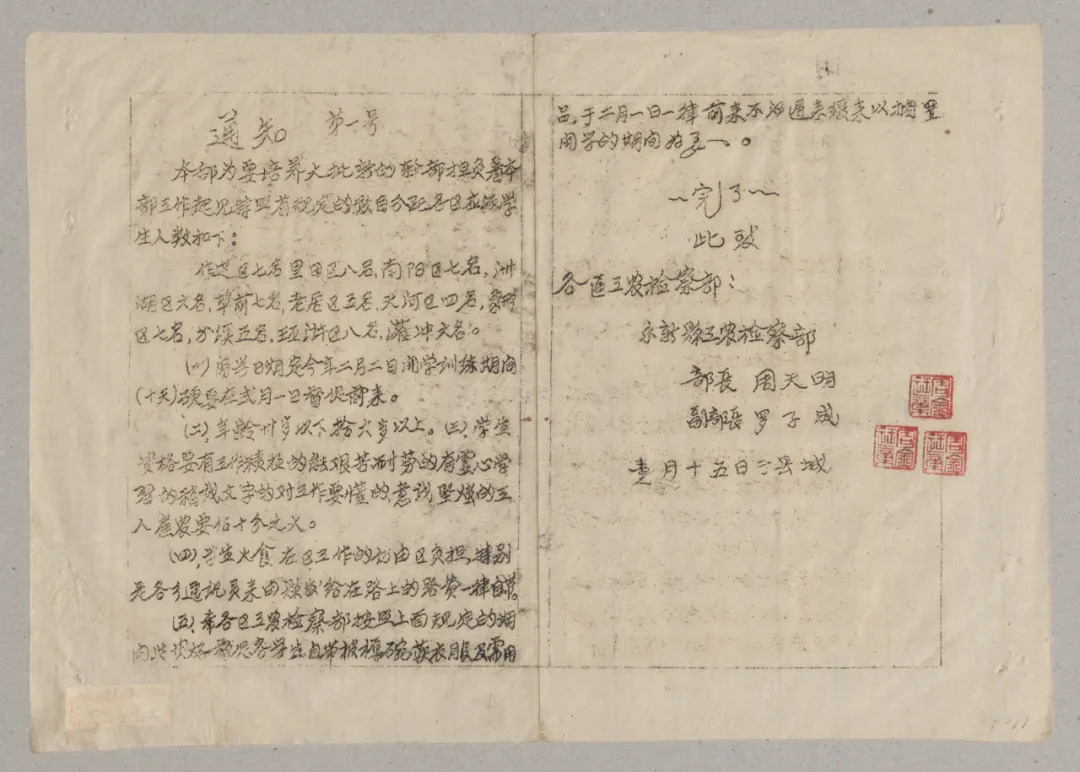 通知 第一号
本部为要培养大批新的干部担负着本
部工作起见特照省规定的数目分配各区应派学
生人数如下：
区七名里田区八名，南阳区七名，洲
湖区六名，前七名，老居区五名，天河区四名，象形
区七名，分须五名，区八名，冲六名。
(一)开学日期定今年二月二日开学训练期间
(十天)硬要在式月一日督促前来。
(二)年龄卅岁以下拾六岁以上。(三)学生
资格要有工作积极的能艰苦耐劳的有灵心学
习的稍识文字的对工作要懂的意识坚强的工
人雇农要佔十分之六。
(四)学生火食在区工作的份由区负担，特别
各乡通讯员来的发给在路上的路费一律自
(五)各区工农检察部按照上面规定的期
间学生自带被毯碗衣服及需用
品，于二月一日一律前来不得迟来缓来以
开学的期间为要一。
~完了~
此致
各区工农检察部：
永新县工农检察部
部长 周天明
副部长 罗子成
壹月十五日于县城